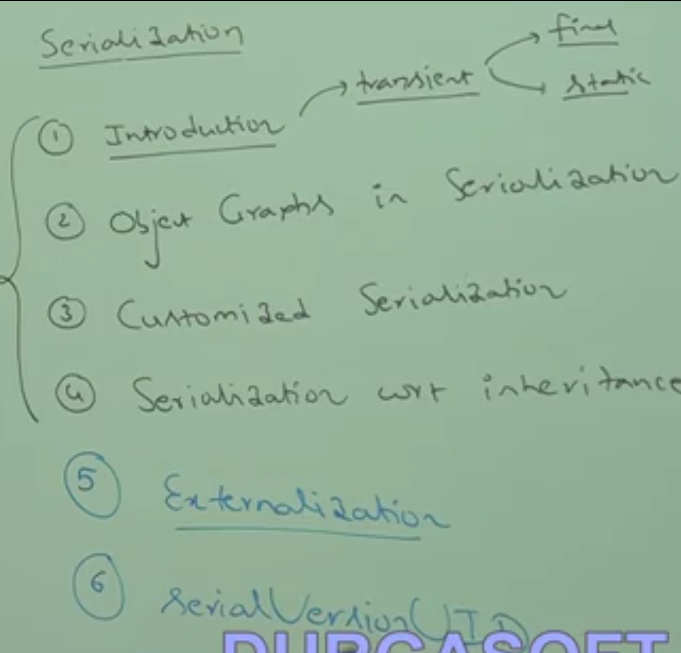 Serialization
① Introduction → transient → final
→ static
② Object Graphs in Serialization
③ Customized Serialization
④ Serialization wrt inheritance
⑤ Externalization
⑥ serialVersionUID
DURGASOFT